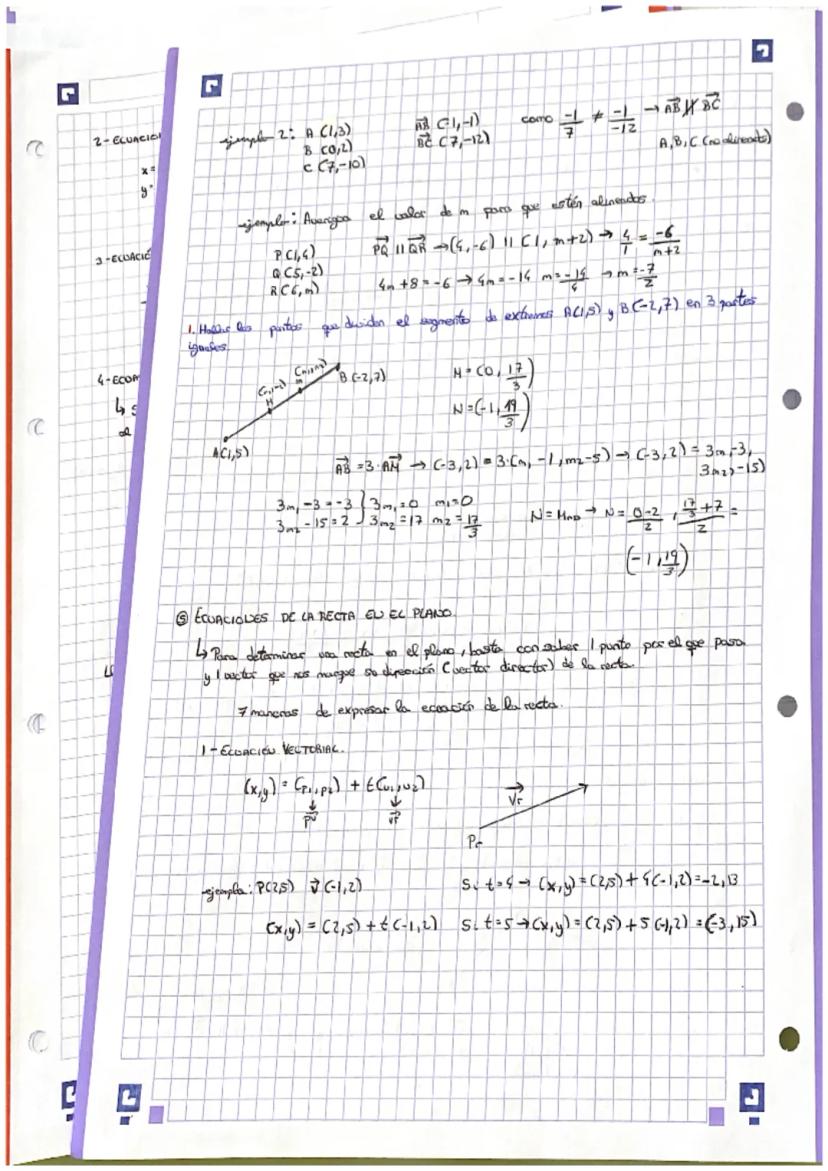 2-ECUACIO
x=
y=
3-ECUACIÓ
4-ECUA
ejemplo 2: A (1,3)
B (0,2)
C (7,-10)
AB (-1,-1)
BC (7,-12)
como -1/7 ≠ -1/-12 → AB ∦ BC
A, B, C (no alineados)
ejemplo: Averigua el valor de m para que estén alineados.
P(1,4)
Q(5,-2)
R(6,m)
PQ || QR → (4,-6) || (1, m+2) → 4/1 = -6/m+2
4m+8=-6 → 4m=-14 m=-14/4 → m=-7/2
1. Hallar los puntos que dividen el segmento de extremos A(1,5) y B(-2,7) en 3 partes
iguales.
A(1,5)
M
N
B(-2,7)
M=(0, 17/3)
N=(-1, 19/3)
AB = 3·AM → (-3,2) = 3·(m1-1, m2-5) → (-3,2) = 3m1-3,
3m2-15)
3m1-3=-3 } 3m1=0 m1=0
3m2-15=2 3m2=17 m2=17/3
N = MMB → N = 0-2/2 , 17/3+7/2 =
(-1, 19/3)
⑤ ECUACIONES DE LA RECTA EN EL PLANO.
↳ Para determinar una recta en el plano, basta con saber 1 punto por el que pasa
y 1 vector que nos marque su dirección (vector director) de la recta.
7 maneras de expresar la ecuación de la recta.
1-ECUACIÓN VECTORIAL.
(x,y) = (p1,p2) + t(v1,v2)
Vr
Pr
ejemplo: P(2,5) v(-1,2)
(x,y) = (2,5) + t(-1,2)
Si t=4 → (x,y) = (2,5) + 4(-1,2) = -2,13
Si t=5 → (x,y) = (2,5) + 5(-1,2) = (-3,15)